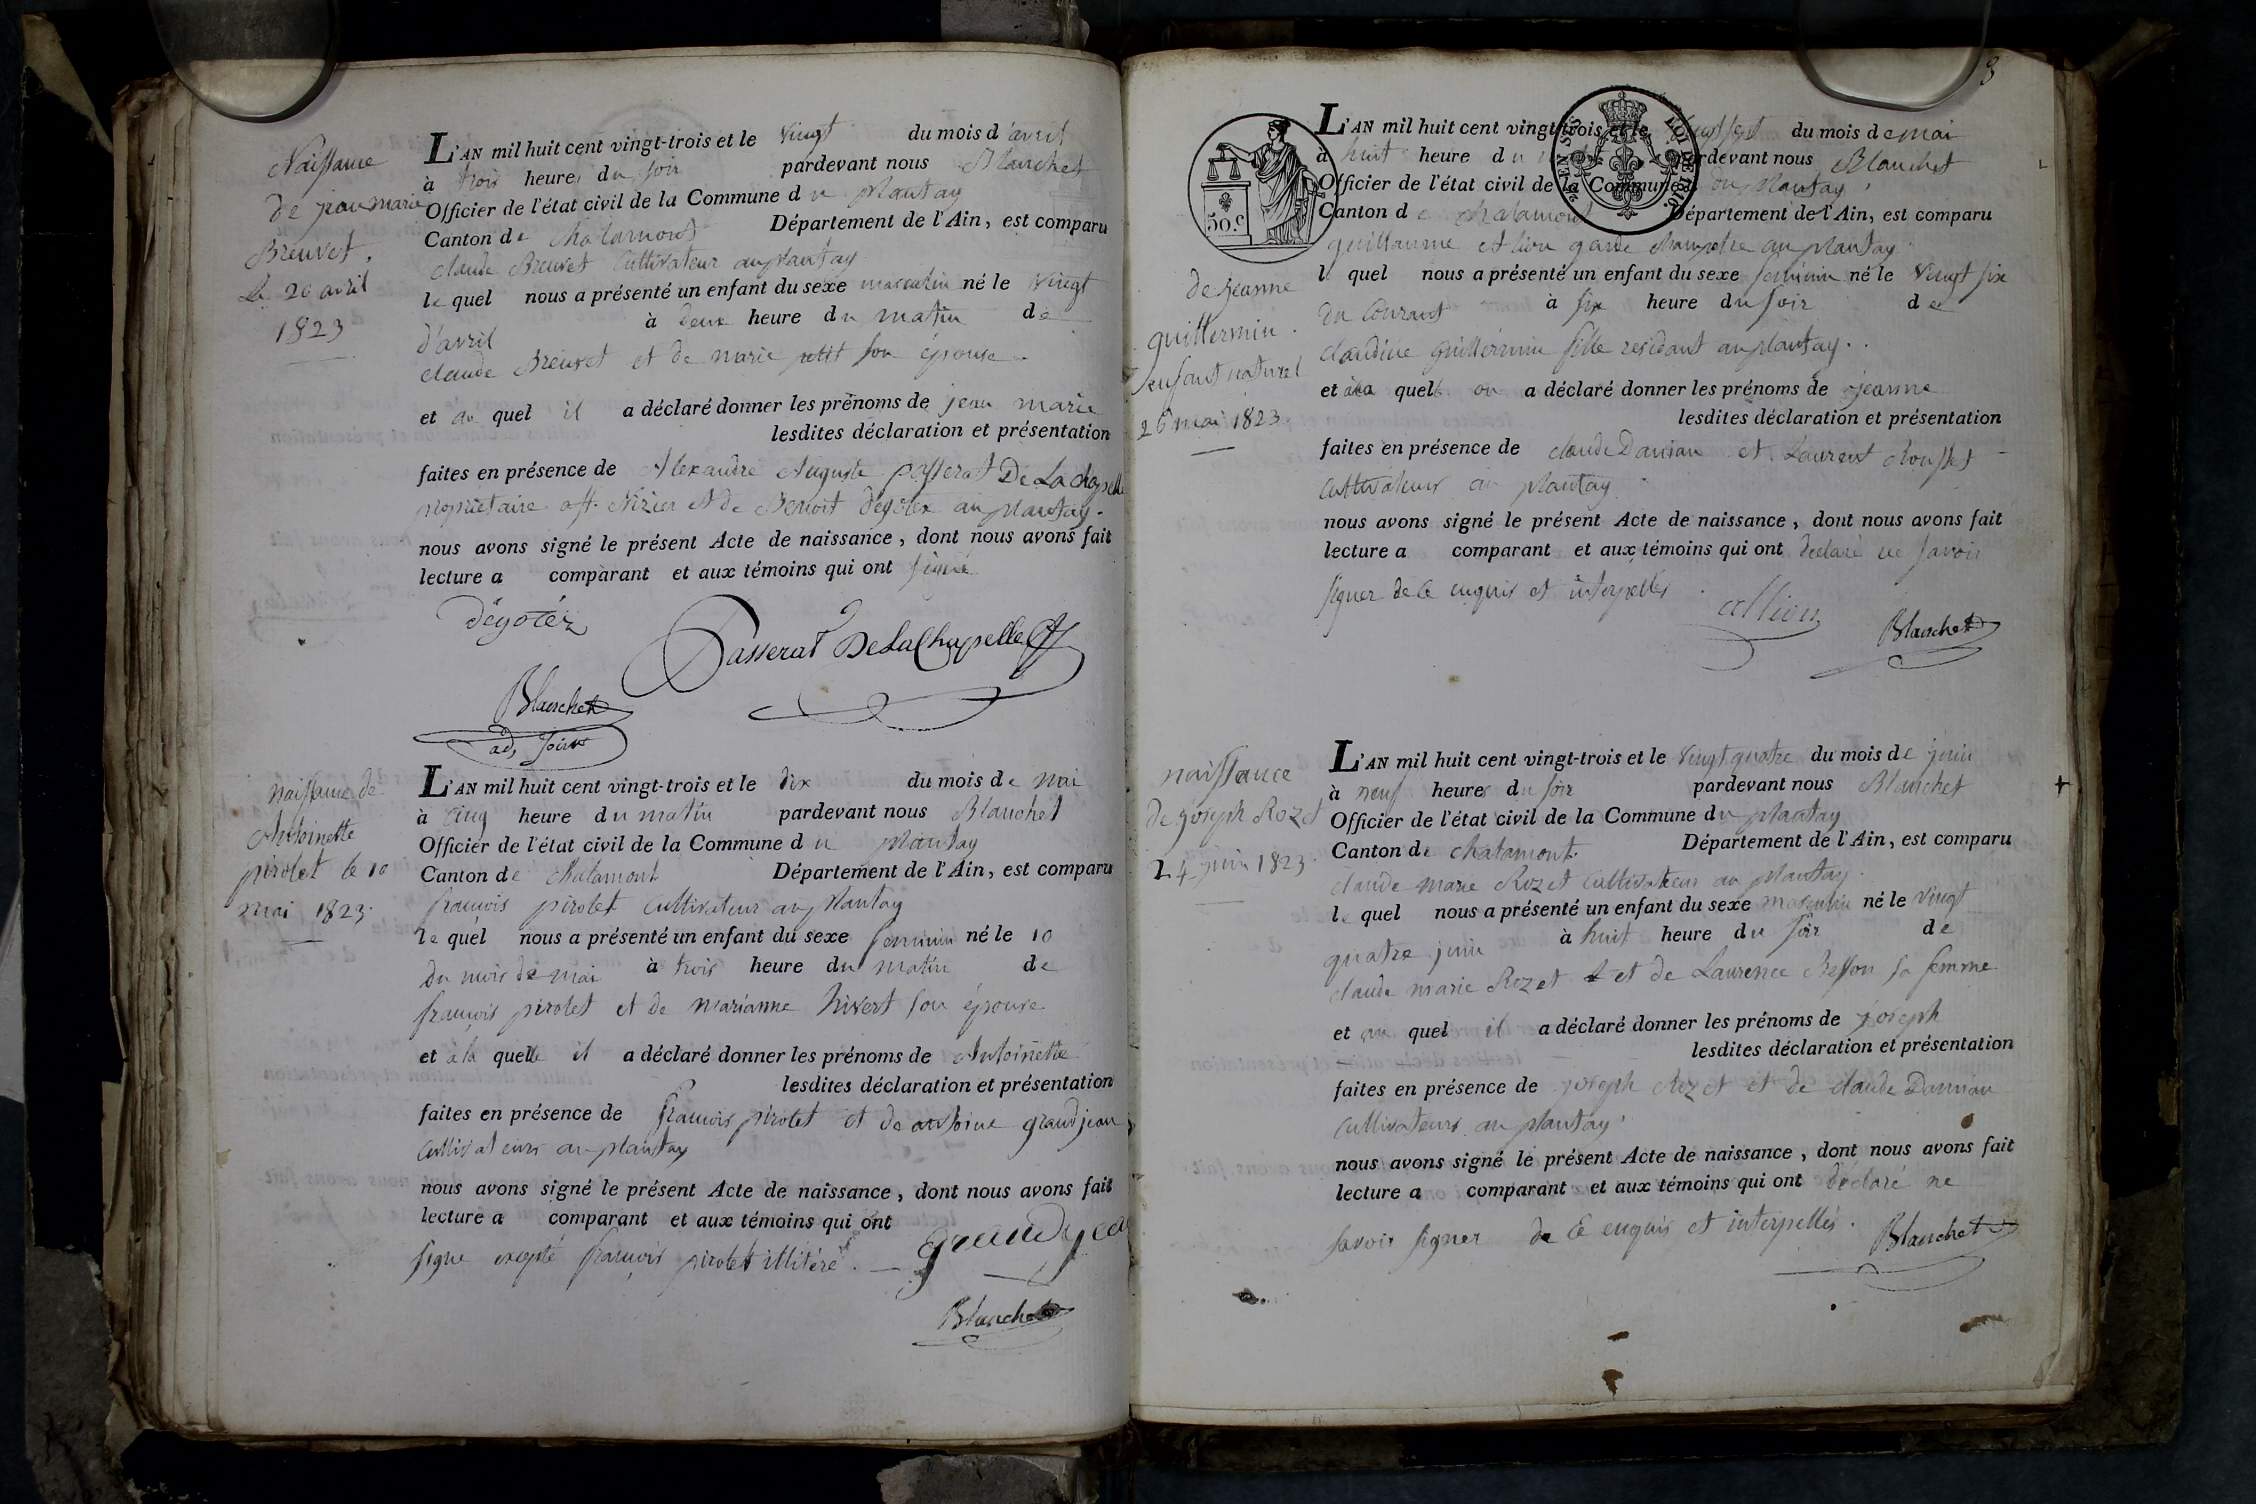 Naissance
de jean marie
Breuvet.
Le 20 avril
1823
L'AN mil huit cent vingt-trois et le vingt du mois d'avril
à trois heures du soir pardevant nous Blanchet
Officier de l'état civil de la Commune du plantay
Canton de chalamont Département de l'Ain, est comparu
claude Breuvet Cultivateur au plantay
lequel nous a présenté un enfant du sexe masculin né le vingt
d'avril à deux heure du matin de
claude Breuvet et de marie petit son épouse
et au quel il a déclaré donner les prénoms de jean marie
lesdites déclaration et présentation
faites en présence de Alexandre Auguste passerat De La chapelle
propriétaire a st. Nizier et de Benoit dégotex au plantay.
nous avons signé le présent Acte de naissance, dont nous avons fait
lecture a comparant et aux témoins qui ont signé
Passerat DeLaChapelle
Blanchet
adjoint
naissance de
Antoinette
pirolet le 10
mai 1823.
L'AN mil huit cent vingt-trois et le dix du mois de mai
à cinq heure du matin pardevant nous Blanchet
Officier de l'état civil de la Commune du plantay
Canton de chalamont Département de l'Ain, est comparu
francois pirolet Cultivateur au plantay
lequel nous a présenté un enfant du sexe feminin né le 10
du mois de mai à trois heure du matin de
françois pirolet et de marianne hivert son épouse
et a la quelle il a déclaré donner les prénoms de Antoinette
lesdites déclaration et présentation
faites en présence de francois pirolet et de antoine grandjean
Cultivateurs au plantay
nous avons signé le présent Acte de naissance, dont nous avons fait
lecture a comparant et aux témoins qui ont
signe exepté francois pirolet illitéré.
grandjean
Blanchet
3
50.c
25 EN SUS
LOI DE 1816.
de jeanne
guillermin.
enfant naturel
26 mai 1823
L'AN mil huit cent vingt-trois et le vingt sept du mois de mai
à huit heure du pardevant nous Blanchet
Officier de l'état civil de la Commune du plantay
Canton de chalamont Département de l'Ain, est comparu
guillaume allion garde champetre au plantay
lequel nous a présenté un enfant du sexe feminin né le vingt six
du courant à six heure du soir de
claudine guillermin fille residant au plantay.
et a la quelle on a déclaré donner les prénoms de jeanne
lesdites déclaration et présentation
faites en présence de claude Damian et Laurent
cultivateurs au plantay
nous avons signé le présent Acte de naissance, dont nous avons fait
lecture a comparant et aux témoins qui ont declaré ne savoir
signer de ce enquis et interpellés.
allion
Blanchet
naissance
de joseph Rozet
24 juin 1823.
L'AN mil huit cent vingt-trois et le vingt quatre du mois de juin
à neuf heures du soir pardevant nous Blanchet
Officier de l'état civil de la Commune du plantay
Canton de chalamont. Département de l'Ain, est comparu
claude marie Rozet cultivateur au plantay.
lequel nous a présenté un enfant du sexe masculin né le vingt
quatre juin à huit heure du soir de
claude marie Rozet et de Laurence Besson sa femme
et au quel il a déclaré donner les prénoms de joseph
lesdites déclaration et présentation
faites en présence de joseph Rozet et de claude Damian
cultivateurs au plantay.
nous avons signé le présent Acte de naissance, dont nous avons fait
lecture a comparant et aux témoins qui ont déclaré ne
savoir signer de ce enquis et interpellés.
Blanchet